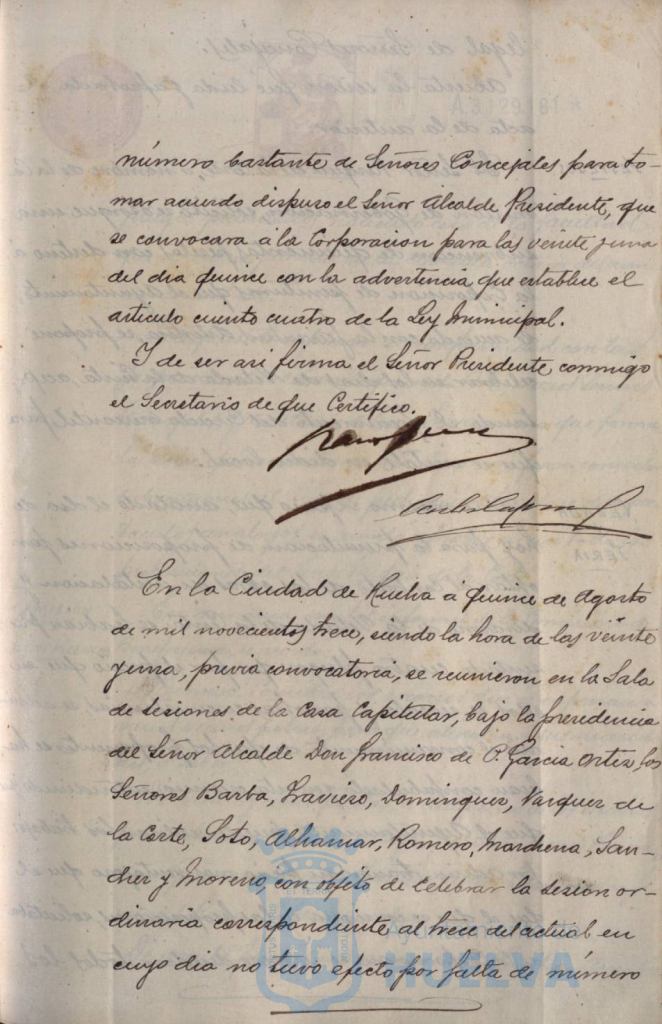 número bastante de Señores Concejales para to-
mar acuerdo dispuso el Señor Alcalde Presidente, que
se convocara á la Corporacion para las veinte y una
del dia quince con la advertencia que establece el
articulo ciento cuatro de la Ley Municipal.
Y de ser asi firma el Señor Presidente conmigo
el Secretario de que Certifico.
En la Ciudad de Huelva á quince de Agosto
de mil novecientos trece, siendo la hora de las veinte
y una, previa convocatoria, se reunieron en la Sala
de Sesiones de la Casa Capitular, bajo la presidencia
del Señor Alcalde Don Francisco de P. Garcia Ortiz, los
Señores Barba, Travieso, Dominguez, Vazquez de
la Corte, Soto, Alhamar, Romero, Marchena, San-
chez y Moreno, con objeto de celebrar la sesion or-
dinaria correspondiente al trece del actual en
cuyo dia no tuvo efecto por falta de número
HUELVA